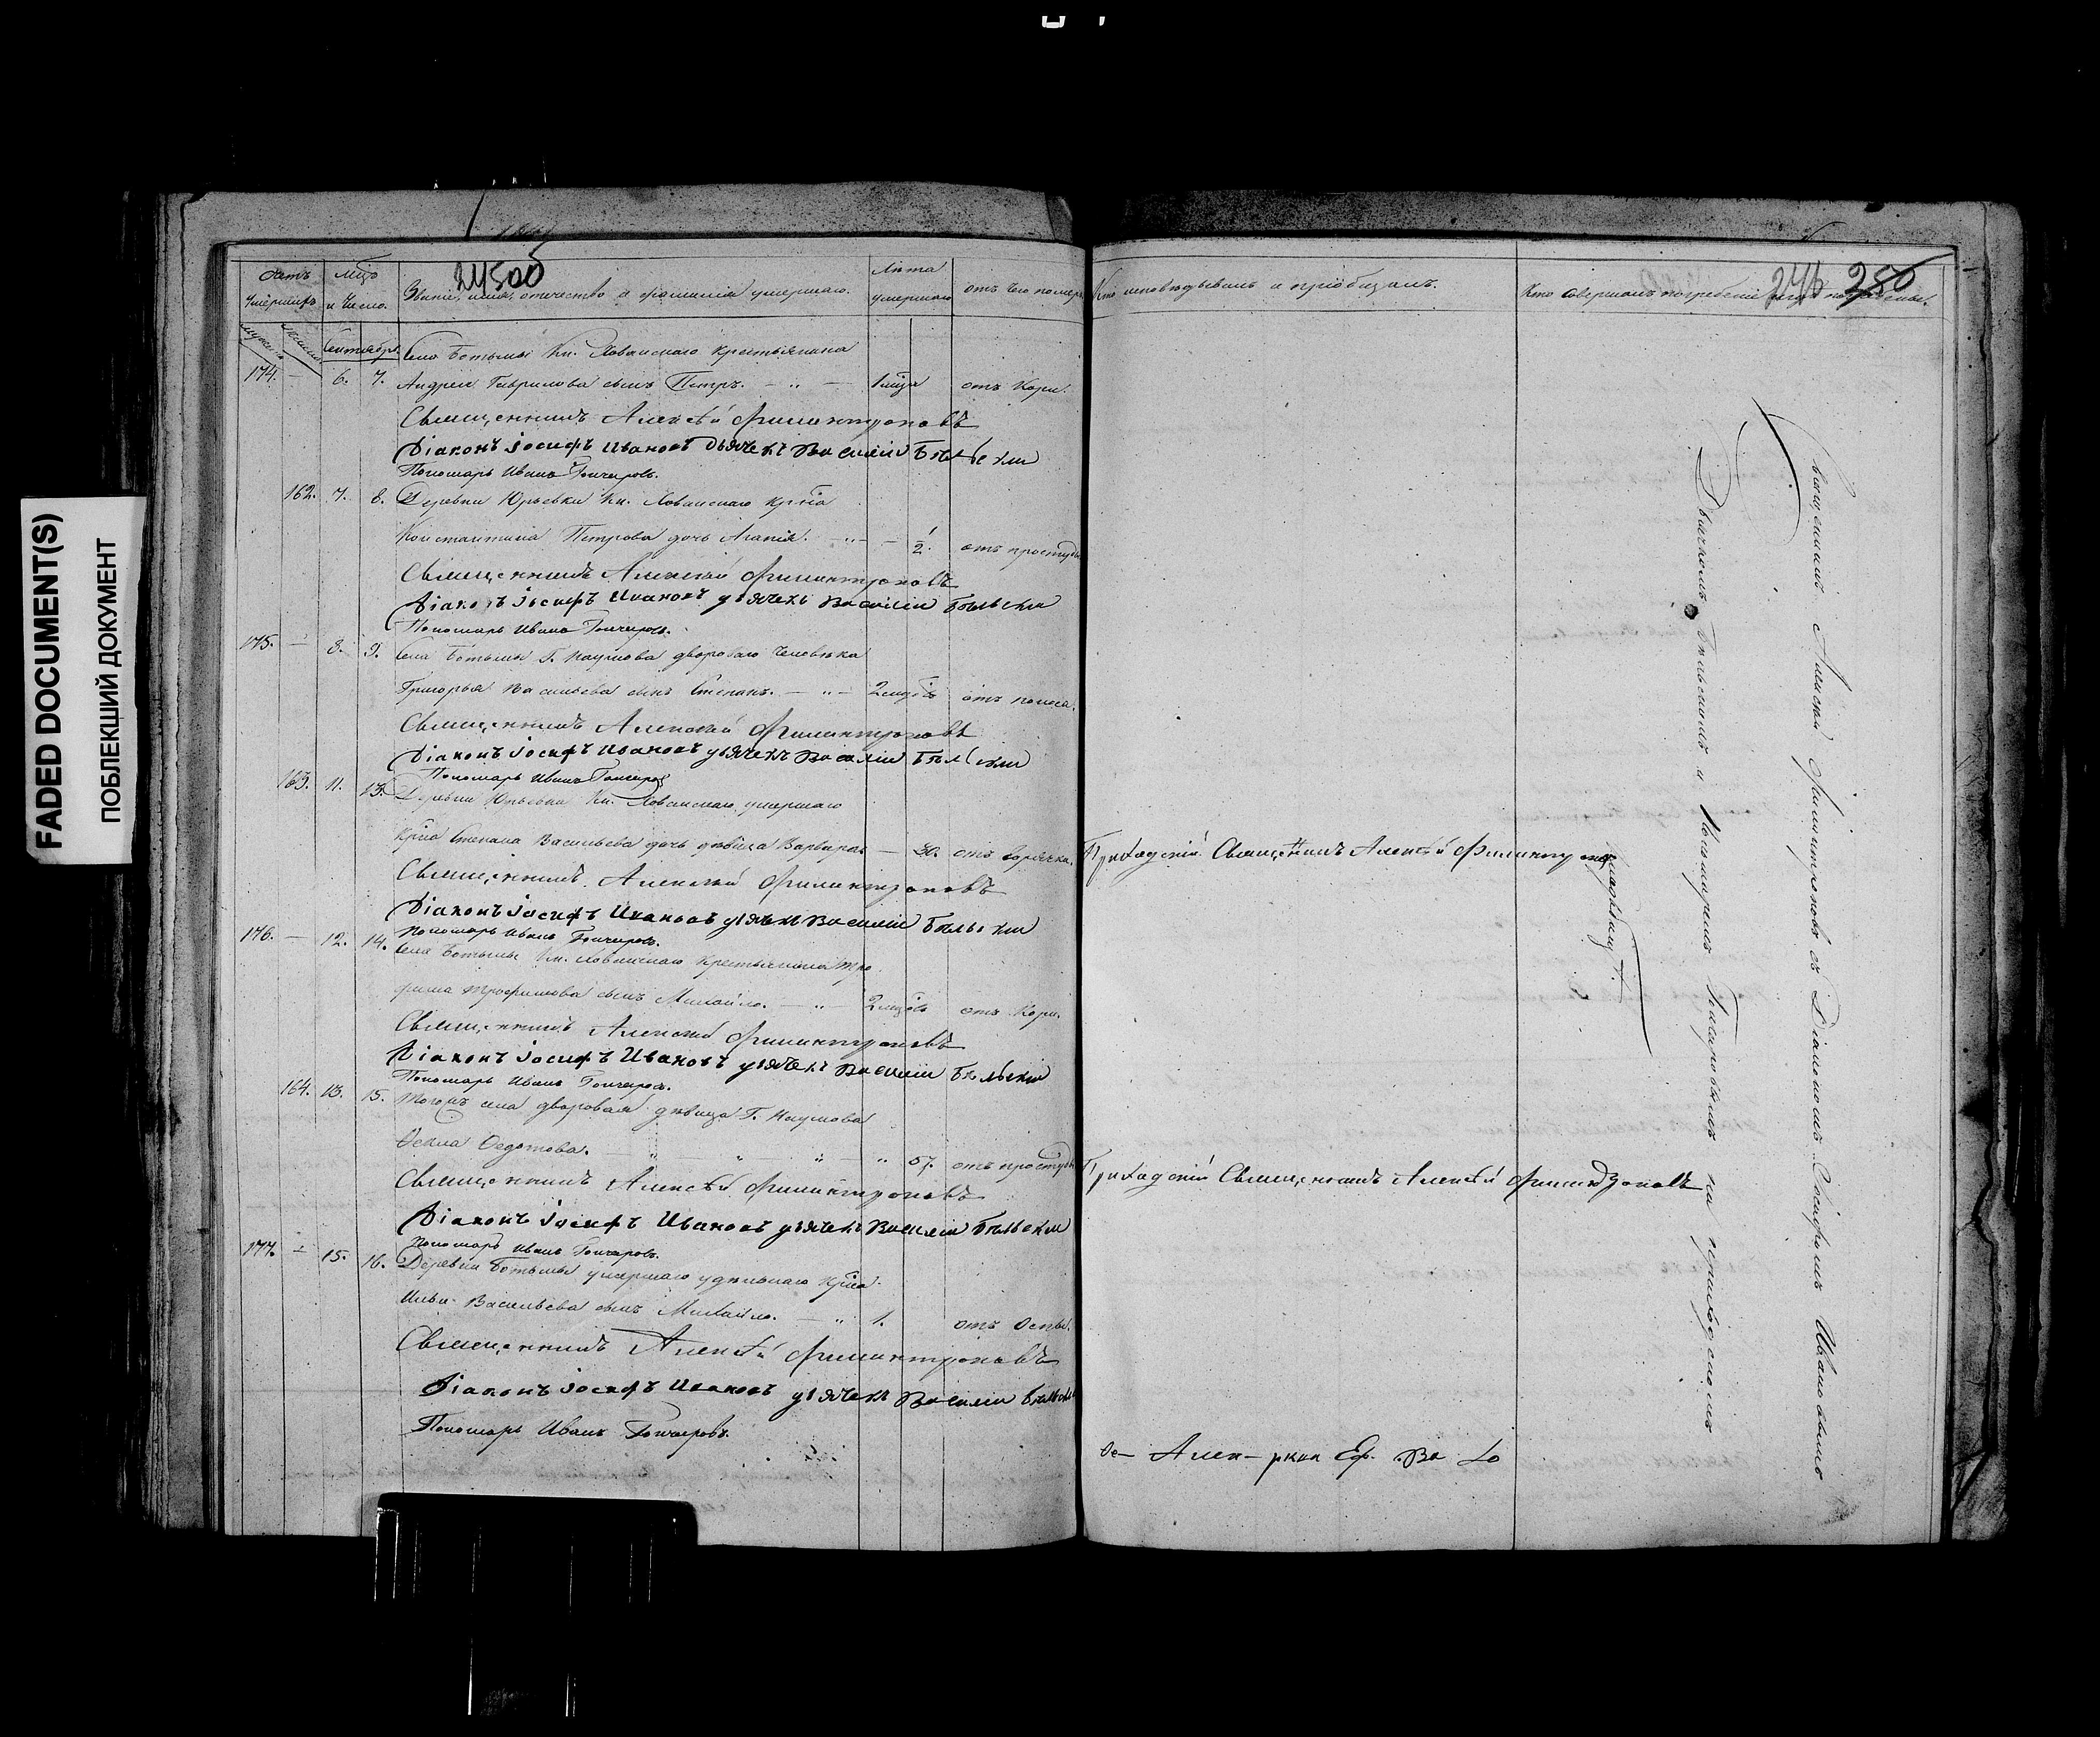 FADED DOCUMENT(S)
ПОБЛЕКШИЙ ДОКУМЕНТ
246 250
умершихъ
Мѣсяцъ и число.
Званіе, имя, отчество и фамилія умершаго.
Лѣта умершаго
отъ чего померъ
Кто исповѣдывалъ и пріобщалъ.
Кто совершалъ погребеніе
Сентябрь
Села Ботьмы Кн. Хованскаго крестьянина
174. — 6. 7. Андрея Гаврилова сынъ Петръ. — „ — 1 мѣсца отъ Кори.
Священникъ Алексѣй Филинтроповъ
Діаконъ Іосифъ Ивановъ Дьячекъ Василій Бѣльскій
Пономарь Иванъ Гончаровъ.
162. 7. 8. Деревни Юрьевки Кн. Хованскаго крна
Константина Петрова дочь Агапія. — „ — ½. отъ простуды
Священникъ Алексѣй Филинтроповъ
Діаконъ Іосифъ Ивановъ дьячекъ Василій Бѣльскій
Пономарь Иванъ Гончаровъ.
175. — 8. 9. Села Ботьмы Г. Наумова двороваго человѣка
Григорья Васильева сынъ Степанъ. — „ — 2 мцовъ отъ поноса.
Священникъ Алексѣй Филинтроповъ
Діаконъ Іосифъ Ивановъ дьячекъ Василій Бѣльскій
Пономарь Иванъ Гончаровъ
163. 11. 13. Деревни Юрьевки Кн. Хованскаго умершаго
крна Степана Васильева дочь дѣвица Варвара — 30. отъ горячки. Приходскій Священникъ Алексѣй Филинтроповъ
Священникъ Алексѣй Филинтроповъ
Діаконъ Іосифъ Ивановъ дьячекъ Василій Бѣльскій
Пономарь Иванъ Гончаровъ.
176. — 12. 14. Села Ботьмы Кн. Хованскаго крестьянина Тро
фима Трофимова сынъ Михайло. — „ — 2 мцовъ отъ Кори.
Священникъ Алексѣй Филинтроповъ
Діаконъ Іосифъ Ивановъ дьячекъ Василій Бѣльскій
Пономарь Иванъ Гончаровъ.
164. 13. 15. Тогожъ села дворовая дѣвица Г. Наумова
Ѳекла Ѳедотова. — „ — „ — „ — „ 57. отъ простуды Приходскій Священникъ Алексѣй Филинтроповъ
Священникъ Алексѣй Филинтроповъ
Діаконъ Іосифъ Ивановъ дьячекъ Василій Бѣльскій
Пономарь Иванъ Гончаровъ.
177. — 15. 16. Деревни Ботьмы умершаго удѣльнаго крна
Ильи Васильева сынъ Михайло. — „ 1. отъ Оспы.
Священникъ Алексѣй Филинтроповъ
Діаконъ Іосифъ Ивановъ дьячекъ Василій Бѣльскій
Пономарь Иванъ Гончаровъ.
Священникъ Алексѣй Филинтроповъ съ Діакономъ Іосифомъ Ивановымъ
Дьячкомъ Бѣльскимъ и Пономаремъ Гончаровымъ на приходскомъ
кладбищѣ